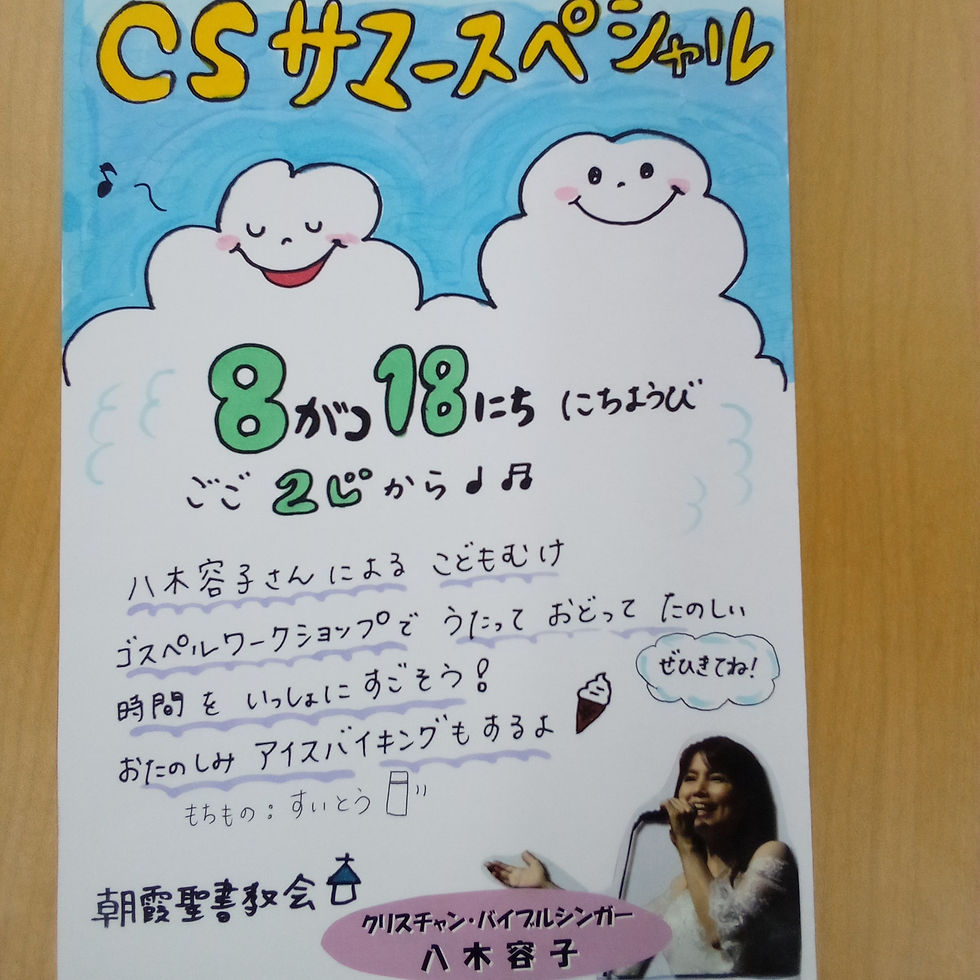 CSサマースペシャル
8がつ18にち にちようび
ごご 2じから♩♫
八木容子さんによる こどもむけ
ゴスペルワークショップで うたって おどって たのしい
時間を いっしょに すごそう!
ぜひきてね!
おたのしみ アイスバイキングもあるよ
もちもの:すいとう
朝霞聖書教会
クリスチャン・バイブルシンガー
八木容子